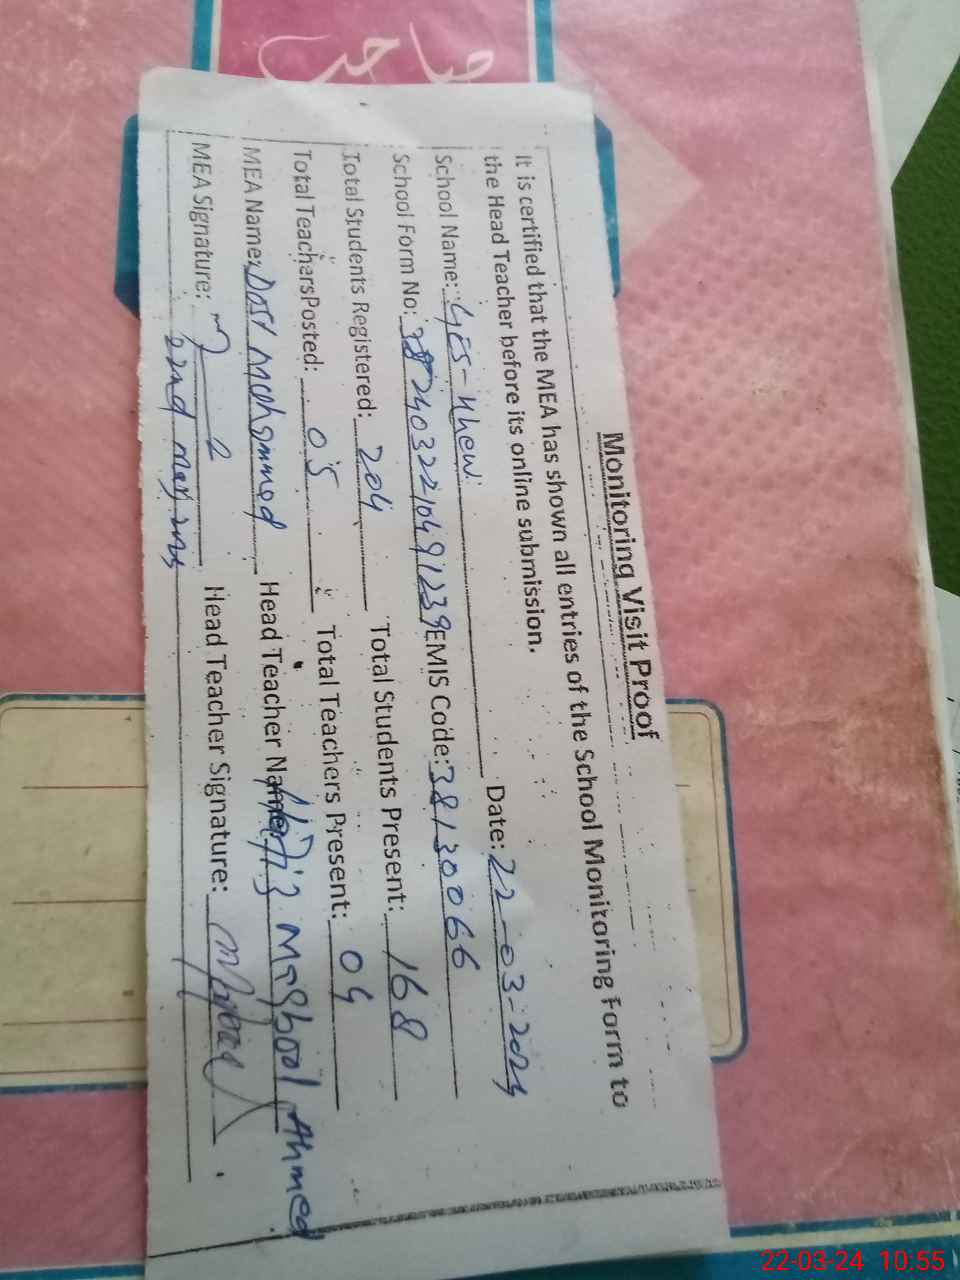 Monitoring Visit Proof
It is certified that the MEA has shown all entries of the School Monitoring Form to
the Head Teacher before its online submission.
School Name: Date: 22-03-2024
School Form No: 3824032210491239 EMIS Code: 38130066
Total Students Registered: 204 Total Students Present: 168
Total Teachers Posted: 05 Total Teachers Present: 04
MEA Name: Dost Mohammed Head Teacher Name: Hafiz Maqbool Ahmed
MEA Signature: Head Teacher Signature:
22nd
22-03-24 10:55